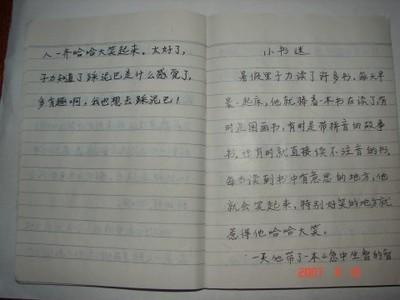 人一齐哈哈大笑起来。太好了，
子力知道了踩泥巴是什么感觉了，
多有趣啊，我也想去踩泥巴！
小书迷
暑假里子力读了许多书，每天早
晨一起床，他就捧着一本书在读了，有
时是图画书，有时是带拼音的故事
书，还有时就直接读不注音的书。
每当读到书中有意思的地方，他
就会笑起来，特别好笑的地方就
惹得他哈哈大笑。
一天他带了一本《急中生智的智
2007